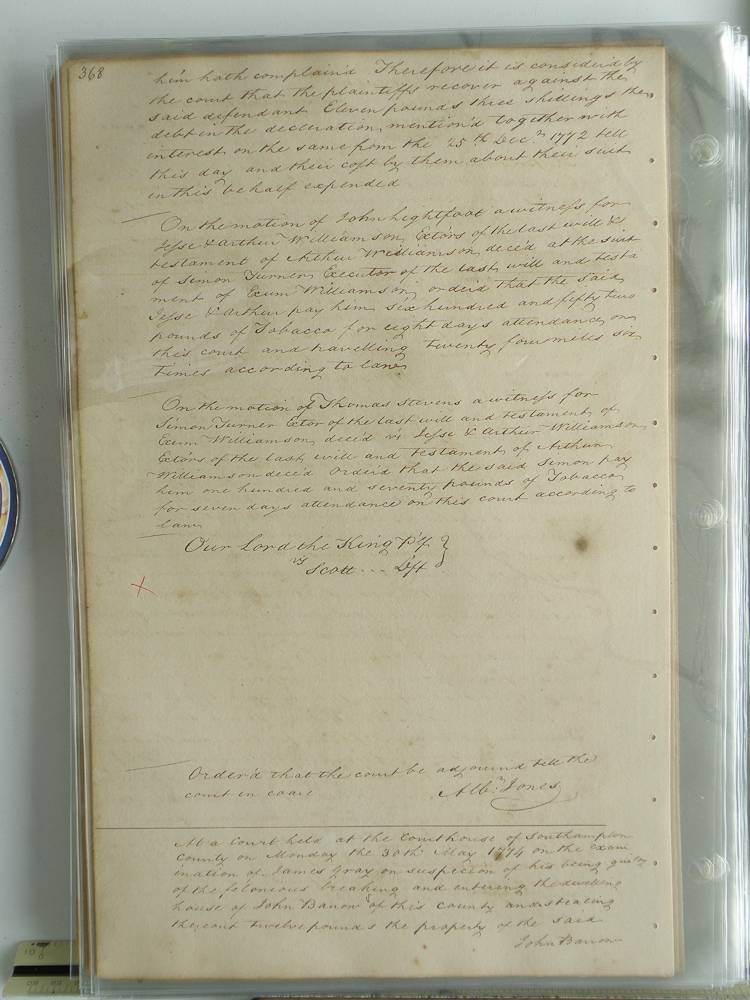 368
him hath complain'd Therefore it is consider'd by
the court that the plaintiffs recover against the
said defendant Eleven pounds three shillings the
debt in the decleration mention'd together with
interest on the same from the 25th Decr 1772 till
this day and their cost by them about their suit
in this behalf expended
On the motion of John Lightfoot a witness for
Jesse & Arthur Williamson Extors of the last will &
testament of Arthur Williamson, dece'd at the suit
of Simon Turner Executor of the last will and testa
ment of Exum Williamson, order'd that the said
Jesse & Arthur pay him six hundred and fifty two
pounds of Tobacco for eight days attendance on
this court and travelling twenty four miles six
times according to law
On the motion of Thomas Stevens a witness for
Simon Turner Extor of the last will and testament of
Exum Williamson, dece'd vs Jesse & Arthur Williamson
Extors of the last will and testament of Arthur
Williamson dece'd Order'd that the said Simon pay
him one hundred and seventy pounds of Tobacco
for seven days attendance on this court according to
law
Our Lord the King Ptf }
vs
Scott --- Dft
Order'd that the court be adjournd till the
court in
Albr. Jones
At a Court held at the Courthouse of Southampton
County on Monday the 30th May 1774 on the Exam
ination of James Gray on suspecion of his being guilty
of the felonious breaking and entering the dwelling
house of John Barrow of this County and stealing
thereout twelve pounds the property of the said
John Barrow